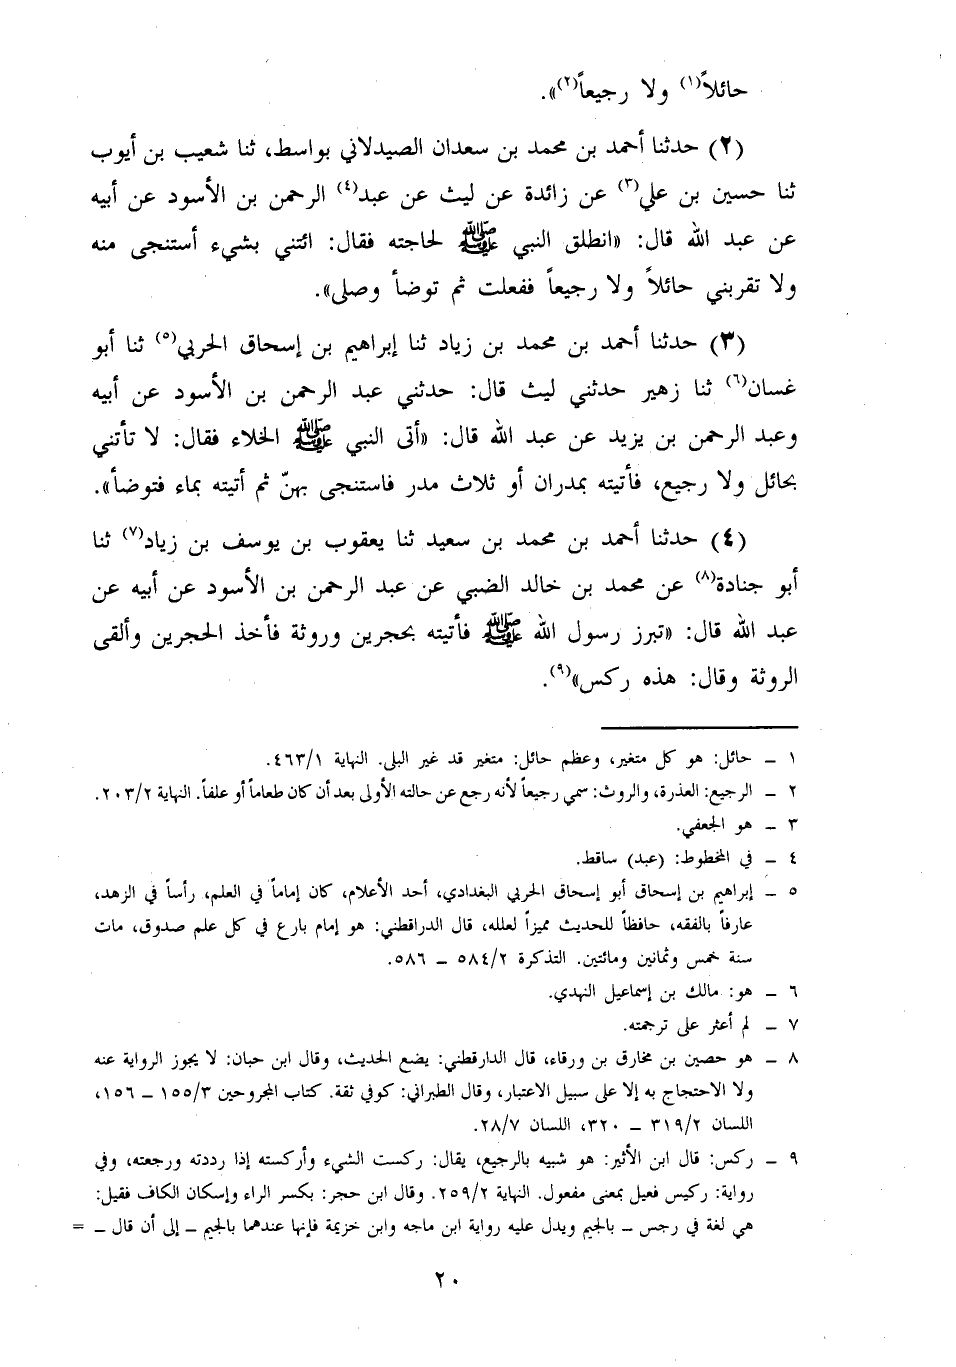 حائلاً(١) ولا رجيعاً(٢)».
(٢) حدثنا أحمد بن محمد بن سعدان الصيدلاني بواسط، ثنا شعيب بن أيوب
ثنا حسين بن علي(٣) عن زائدة عن ليث عن عبد(٤) الرحمن بن الأسود عن أبيه
عن عبد الله قال: «انطلق النبي ﷺ لحاجته فقال: ائتني بشيء أستنجى منه
ولا تقربني حائلاً ولا رجيعاً ففعلت ثم توضأ وصلى».
(٣) حدثنا أحمد بن محمد بن زياد ثنا إبراهيم بن إسحاق الحربي(٥) ثنا أبو
غسان(٦) ثنا زهير حدثني ليث قال: حدثني عبد الرحمن بن الأسود عن أبيه
وعبد الرحمن بن يزيد عن عبد الله قال: «أتى النبي ﷺ الخلاء فقال: لا تأتني
بحائل ولا رجيع، فأتيته بمدران أو ثلاث مدر فاستنجى بهنّ ثم أتيته بماء فتوضأ».
(٤) حدثنا أحمد بن محمد بن سعيد ثنا يعقوب بن يوسف بن زياد(٧) ثنا
أبو جنادة(٨) عن محمد بن خالد الضبي عن عبد الرحمن بن الأسود عن أبيه عن
عبد الله قال: «تبرز رسول الله ﷺ فأتيته بحجرين وروثة فأخذ الحجرين وألقى
الروثة وقال: هذه ركس»(٩).
١ ــ حائل: هو كل متغير، وعظم حائل: متغير قد غير البلى. النهاية ٤٦٣/١.
٢ ــ الرجيع: العذرة، والروث: سمي رجيعاً لأنه رجع عن حالته الأولى بعد أن كان طعاماً أو علفاً. النهاية ٢٠٣/٢.
٣ ــ هو الجعفي.
٤ ــ في المخطوط: (عبد) ساقط.
٥ ــ إبراهيم بن إسحاق أبو إسحاق الحربي البغدادي، أحد الأعلام، كان إماماً في العلم، رأساً في الزهد،
عارفاً بالفقه، حافظاً للحديث مميزاً لعلله، قال الدراقطني: هو إمام بارع في كل علم صدوق، مات
سنة خمس وثمانين ومائتين. التذكرة ٥٨٤/٢ ــ ٥٨٦.
٦ ــ هو: مالك بن إسماعيل النهدي.
٧ ــ لم أعثر على ترجمته.
٨ ــ هو حصين بن مخارق بن ورقاء، قال الدارقطني: يضع الحديث، وقال ابن حبان: لا يجوز الرواية عنه
ولا الاحتجاج به إلا على سبيل الاعتبار، وقال الطبراني: كوفي ثقة. كتاب المجروحين ١٥٥/٣ ــ ١٥٦،
اللسان ٣١٩/٢ ــ ٣٢٠، اللسان ٢٨/٧.
٩ ــ ركس: قال ابن الأثير: هو شبيه بالرجيع، يقال: ركست الشيء وأركسته إذا رددته ورجعته، وفي
رواية: ركيس فعيل بمعنى مفعول. النهاية ٢٥٩/٢. وقال ابن حجر: بكسر الراء وإسكان الكاف فقيل:
هي لغة في رجس ــ بالجيم ويدل عليه رواية ابن ماجه وابن خزيمة فإنها عندهما بالجيم ــ إلى أن قال ــ =
٢٠